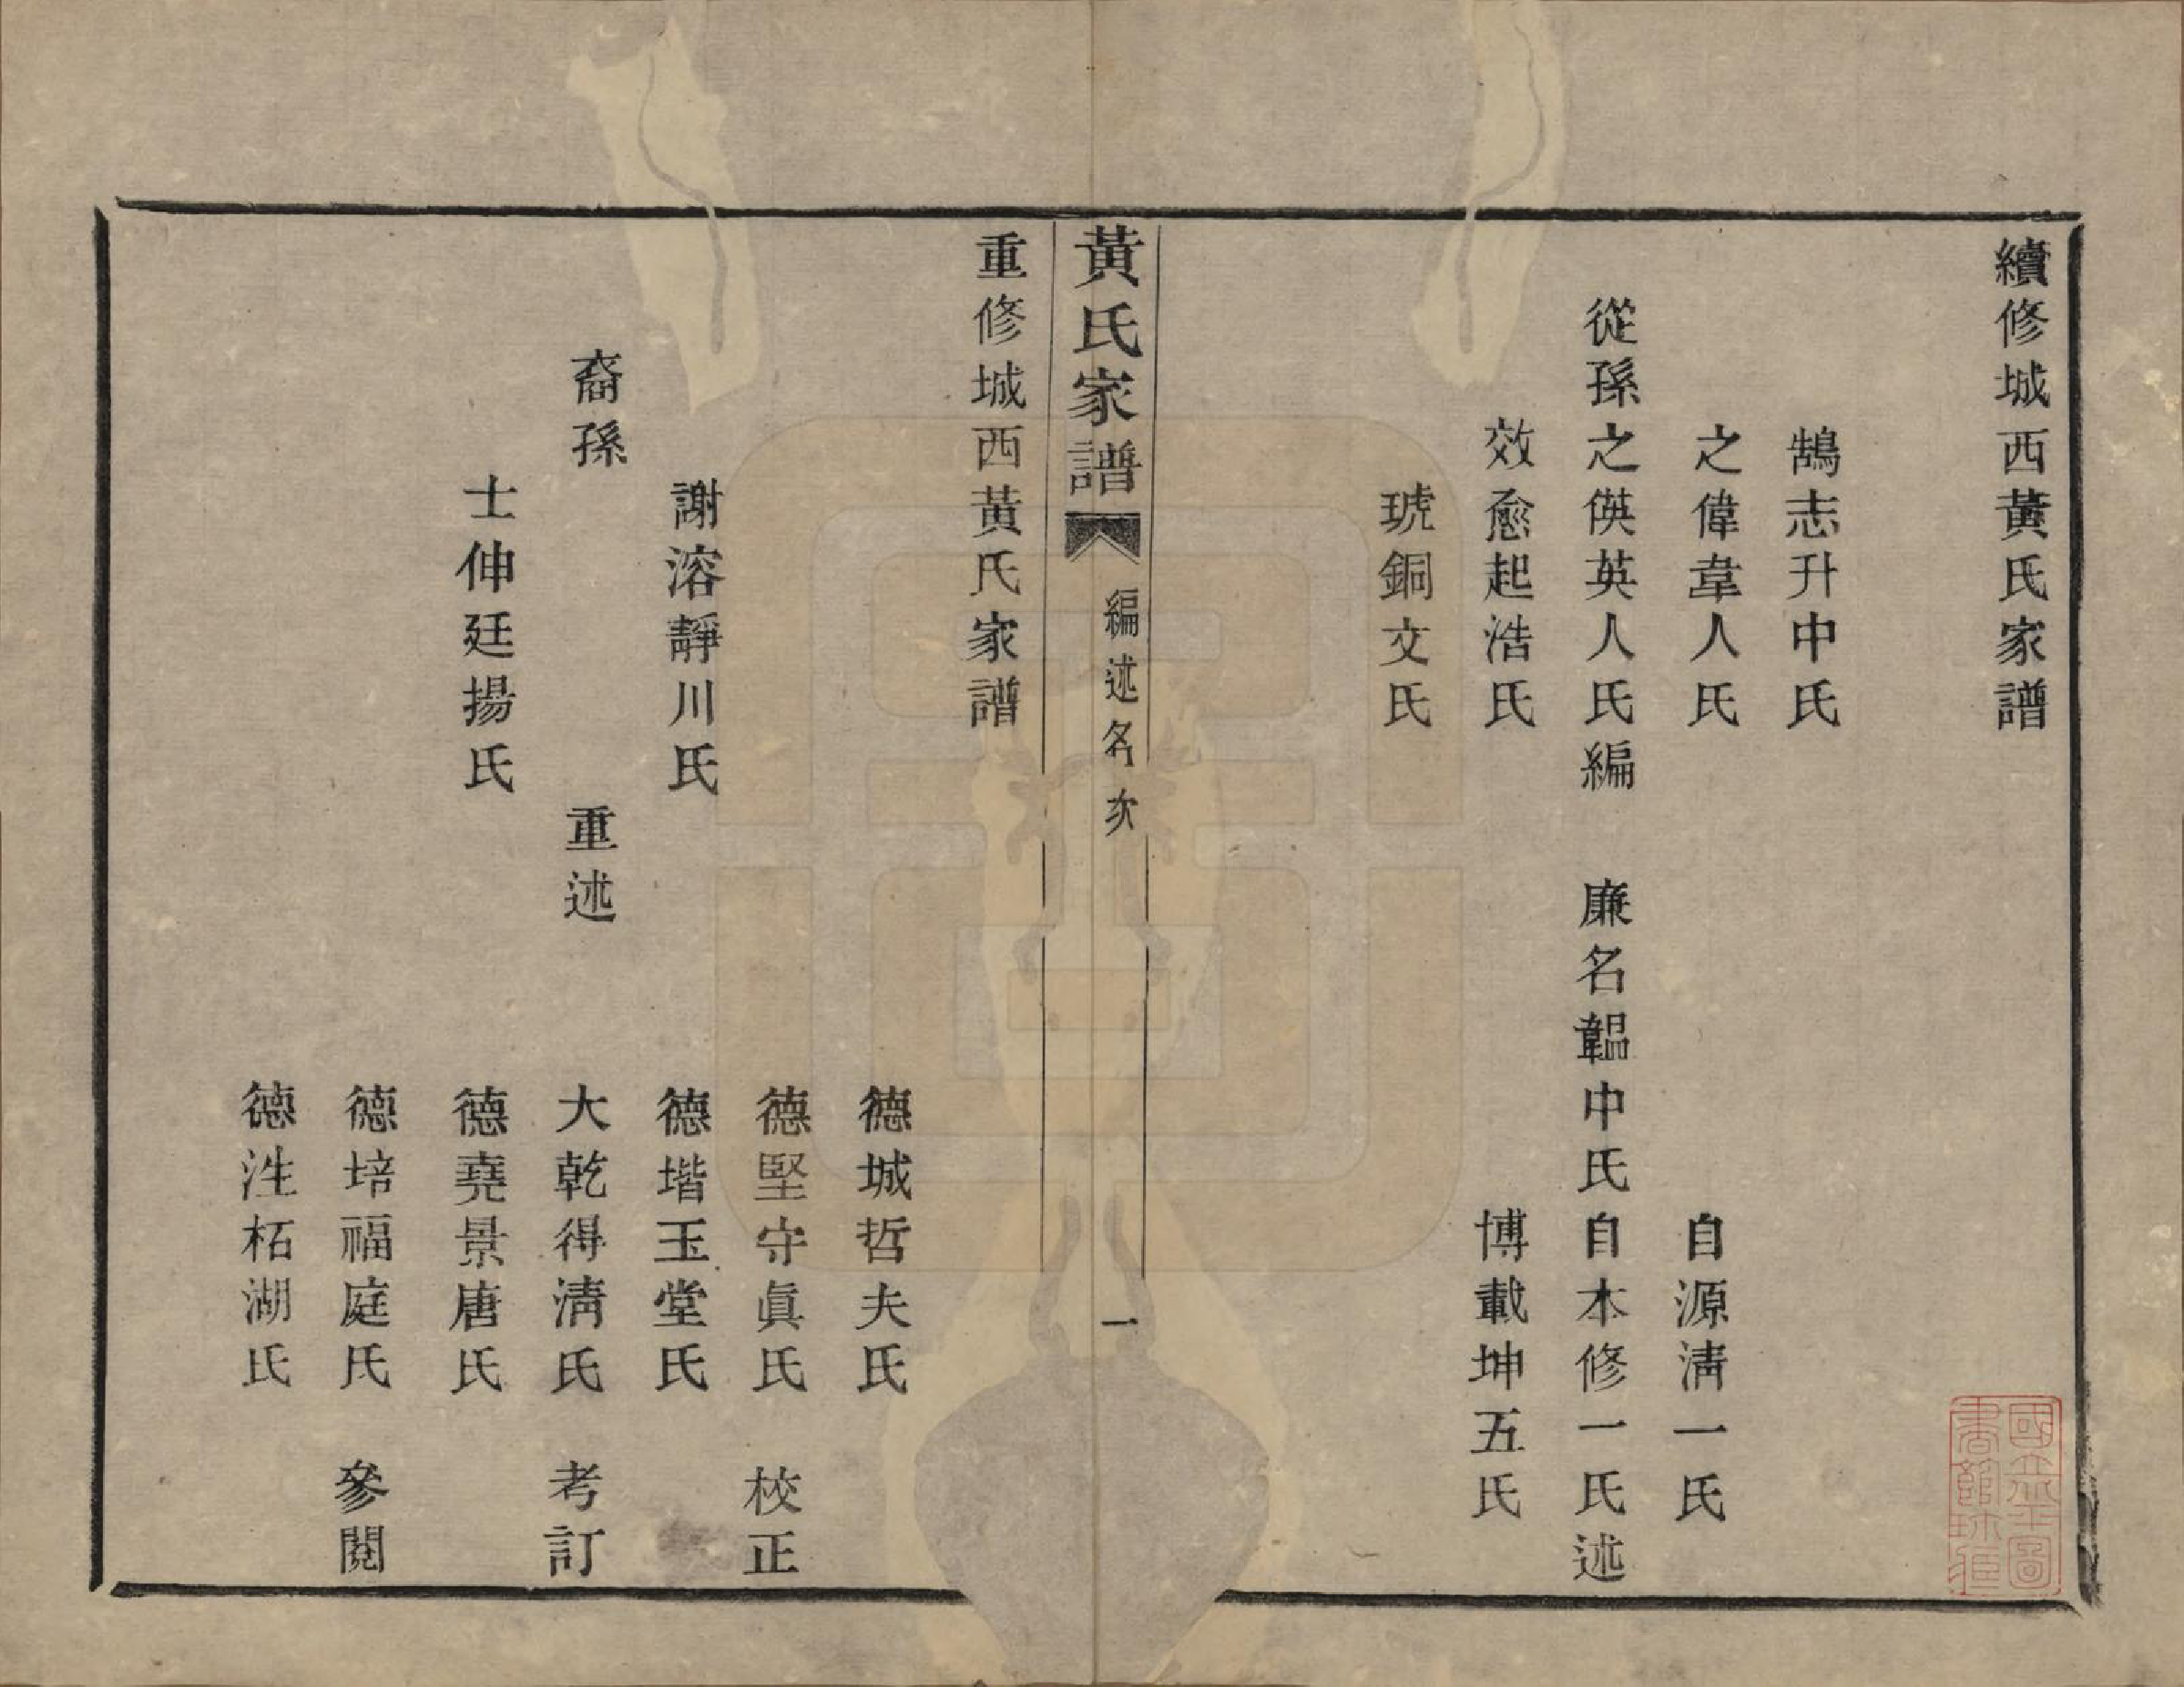 續修城西黃氏家譜
鵠志升中氏
之偉韋人氏
自源淸一氏
從孫之偀英人氏編
廉名韞中氏自本修一氏述
效愈起浩氏
博載坤五氏
琥銅文氏
黃氏家譜
編述名次
一
重修城西黃氏家譜
德城哲夫氏
德堅守眞氏
校正
謝溶靜川氏
德堦玉堂氏
裔孫
重述
大乾得淸氏
考訂
士伸廷揚氏
德堯景唐氏
德培福庭氏
參閱
德泩柘湖氏